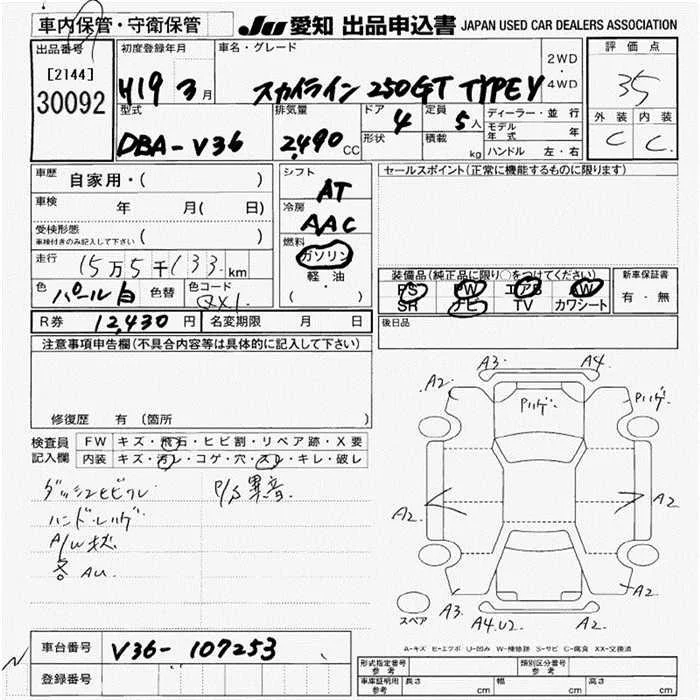 車内保管・守衛保管
JU 愛知 出品申込書 JAPAN USED CAR DEALERS ASSOCIATION
出品番号
[2144]
30092
初度登録年月
H19 3月
車名・グレード
スカイライン 250GT TYPE V
2WD
・
4WD
評価点
35
外装 内装
C C
型式
DBA-V36
排気量
2,490 CC
ドア
4
形状
定員
5人
積載
kg
ディーラー・並行
モデル年式 年
ハンドル 左・右
車歴
自家用・( )
車検 年 月( 日)
受検形態
車検付きのみ記入して下さい ( )
走行 15万5千133km
色 パール白 色替 色コード QX1
シフト
AT
冷房
AAC
燃料
ガソリン
軽・油
( )
セールスポイント(正常に機能するものに限ります)
装備品(純正品に限り○をつけてください)
PS PW エアB AW
SR ナビ TV カワシート
新車保証書
有・無
後日品
R券 12,430円 名変期限 月 日
注意事項申告欄(不具合内容等は具体的に記入して下さい)
修復歴 有 (箇所
検査員記入欄
FW キズ・飛石・ヒビ割・リペア跡・X要
内装 キズ・汚レ・コゲ・穴・スレ・キレ・破レ
P/S異音
ハンドルハゲ
A/Wキズ
各AU.
A3. A4.
A2. Pハゲ Pハゲ
A2. A2.
A2.
A3. A4.U2 A2.
スペア
A-キズ E-エクボ U-凹み W-補修跡 S-サビ C-腐食 XX-交換済
車台番号 V36-107253
登録番号
形式指定番号 参考
類別区分番号 参考
車庫証明用 参考 長さ cm 幅 cm 高さ cm